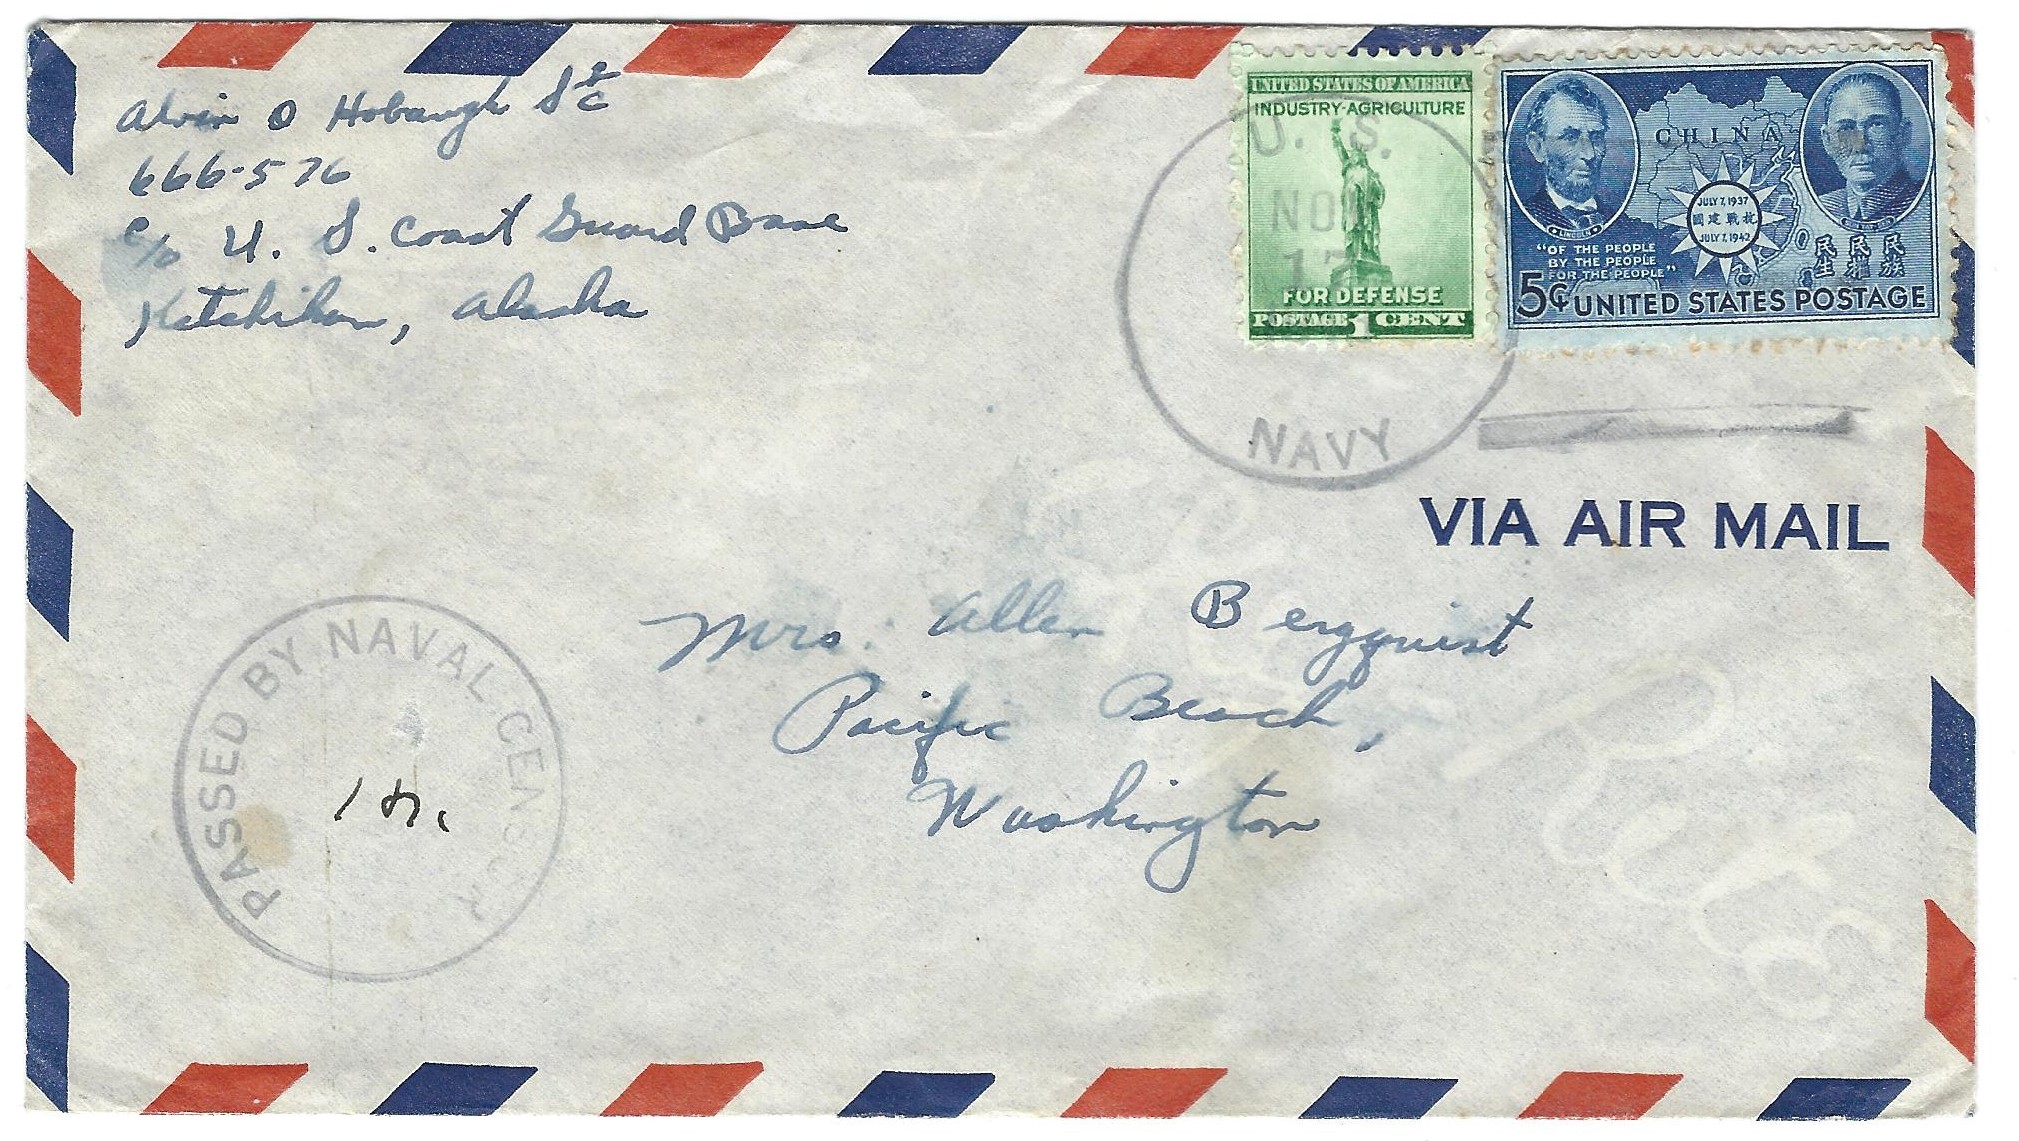 Alvin O Hobaugh S2/c
666-576
c/o U. S. Coast Guard Base
Ketchikan, Alaska
UNITED STATES OF AMERICA
INDUSTRY-AGRICULTURE
FOR DEFENSE
POSTAGE 1 CENT
CHINA
LINCOLN
JULY 7, 1937
國建戰抗
JULY 7, 1942
"OF THE PEOPLE
BY THE PEOPLE
FOR THE PEOPLE"
民生 民權 民族
5¢ UNITED STATES POSTAGE
U. S.
NOV
17
NAVY
VIA AIR MAIL
Mrs. Allen Bergquist
Pacific Beach,
Washington
PASSED BY NAVAL CENSOR